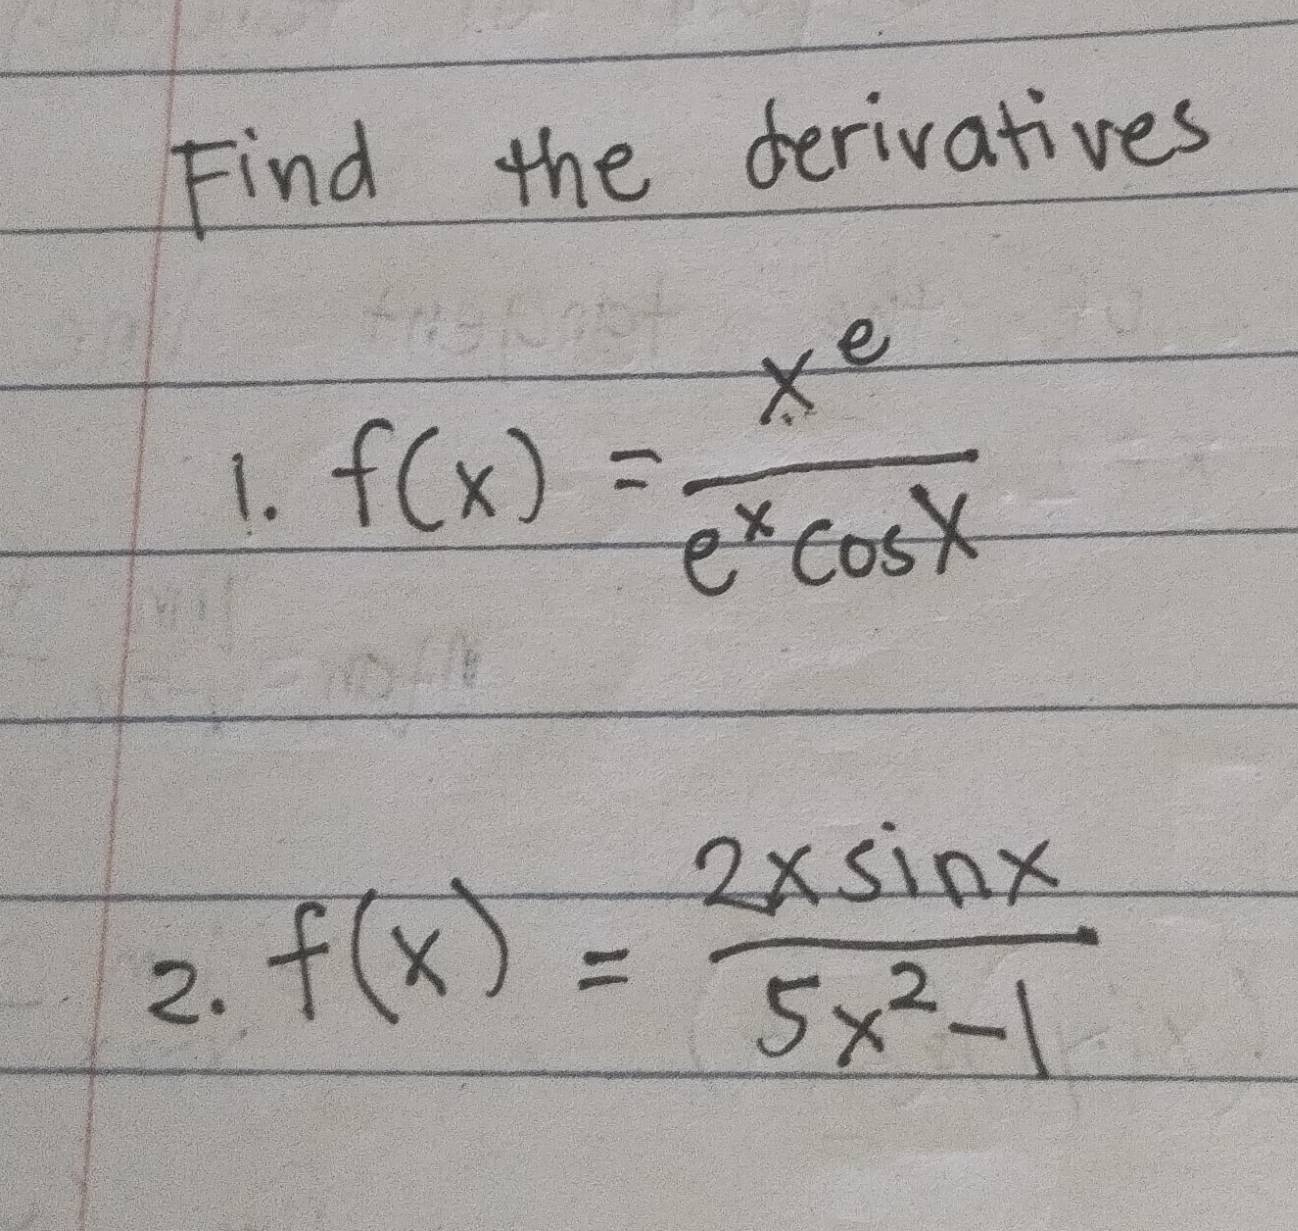 Find the derivatives
1. f(x) = x^e / e^x cos x
2. f(x) = 2x sin x / 5x² - 1